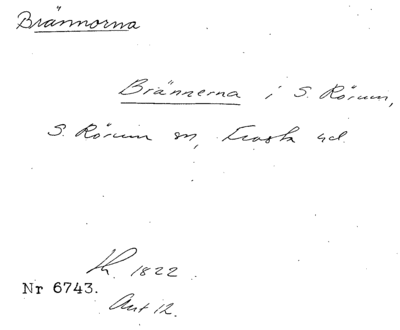 Brännorna
Brännerna i S. Rörum,
S. Rörum sn, Frosta hd.
lk. 1822
Nr 6743.
Akt 12.